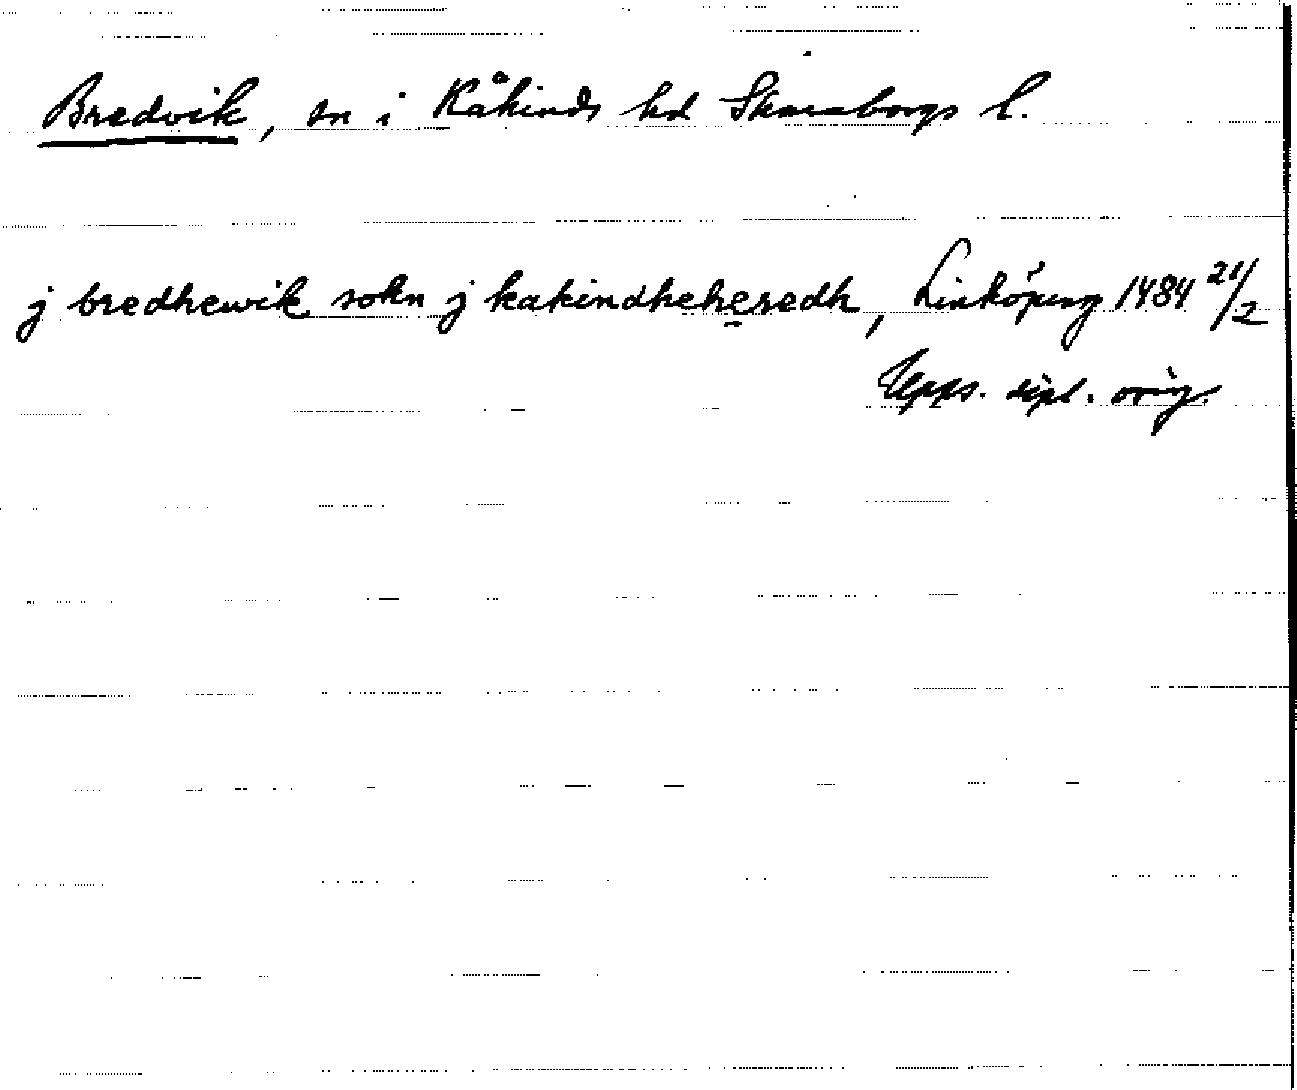 Bredvik, sn i Kåkinds hd Skaraborgs l.
j bredhewik sokn j kakindheheredh, Linköping 1484 21/2
Upps. dipl. orig.